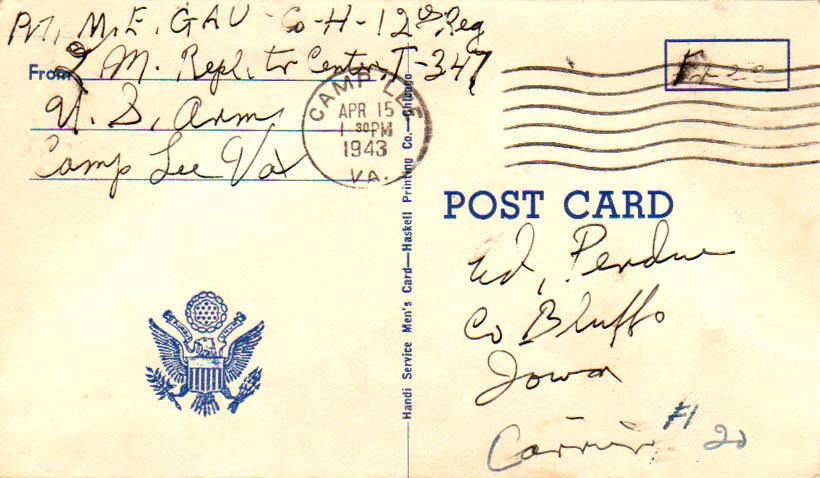 Pvt, M. E. GAU Co-H-12th Reg
From Q M. Repl. tr Center, T-347
U. S. Army
Camp Lee Va
CAMP LEE
APR 15
1 30PM
1943
VA.
Free
POST CARD
Ed, Perdue
Co Bluffs
Iowa
Carrier #1
20
Handi Service Men's Card—Haskell Printing Co.—Chicago